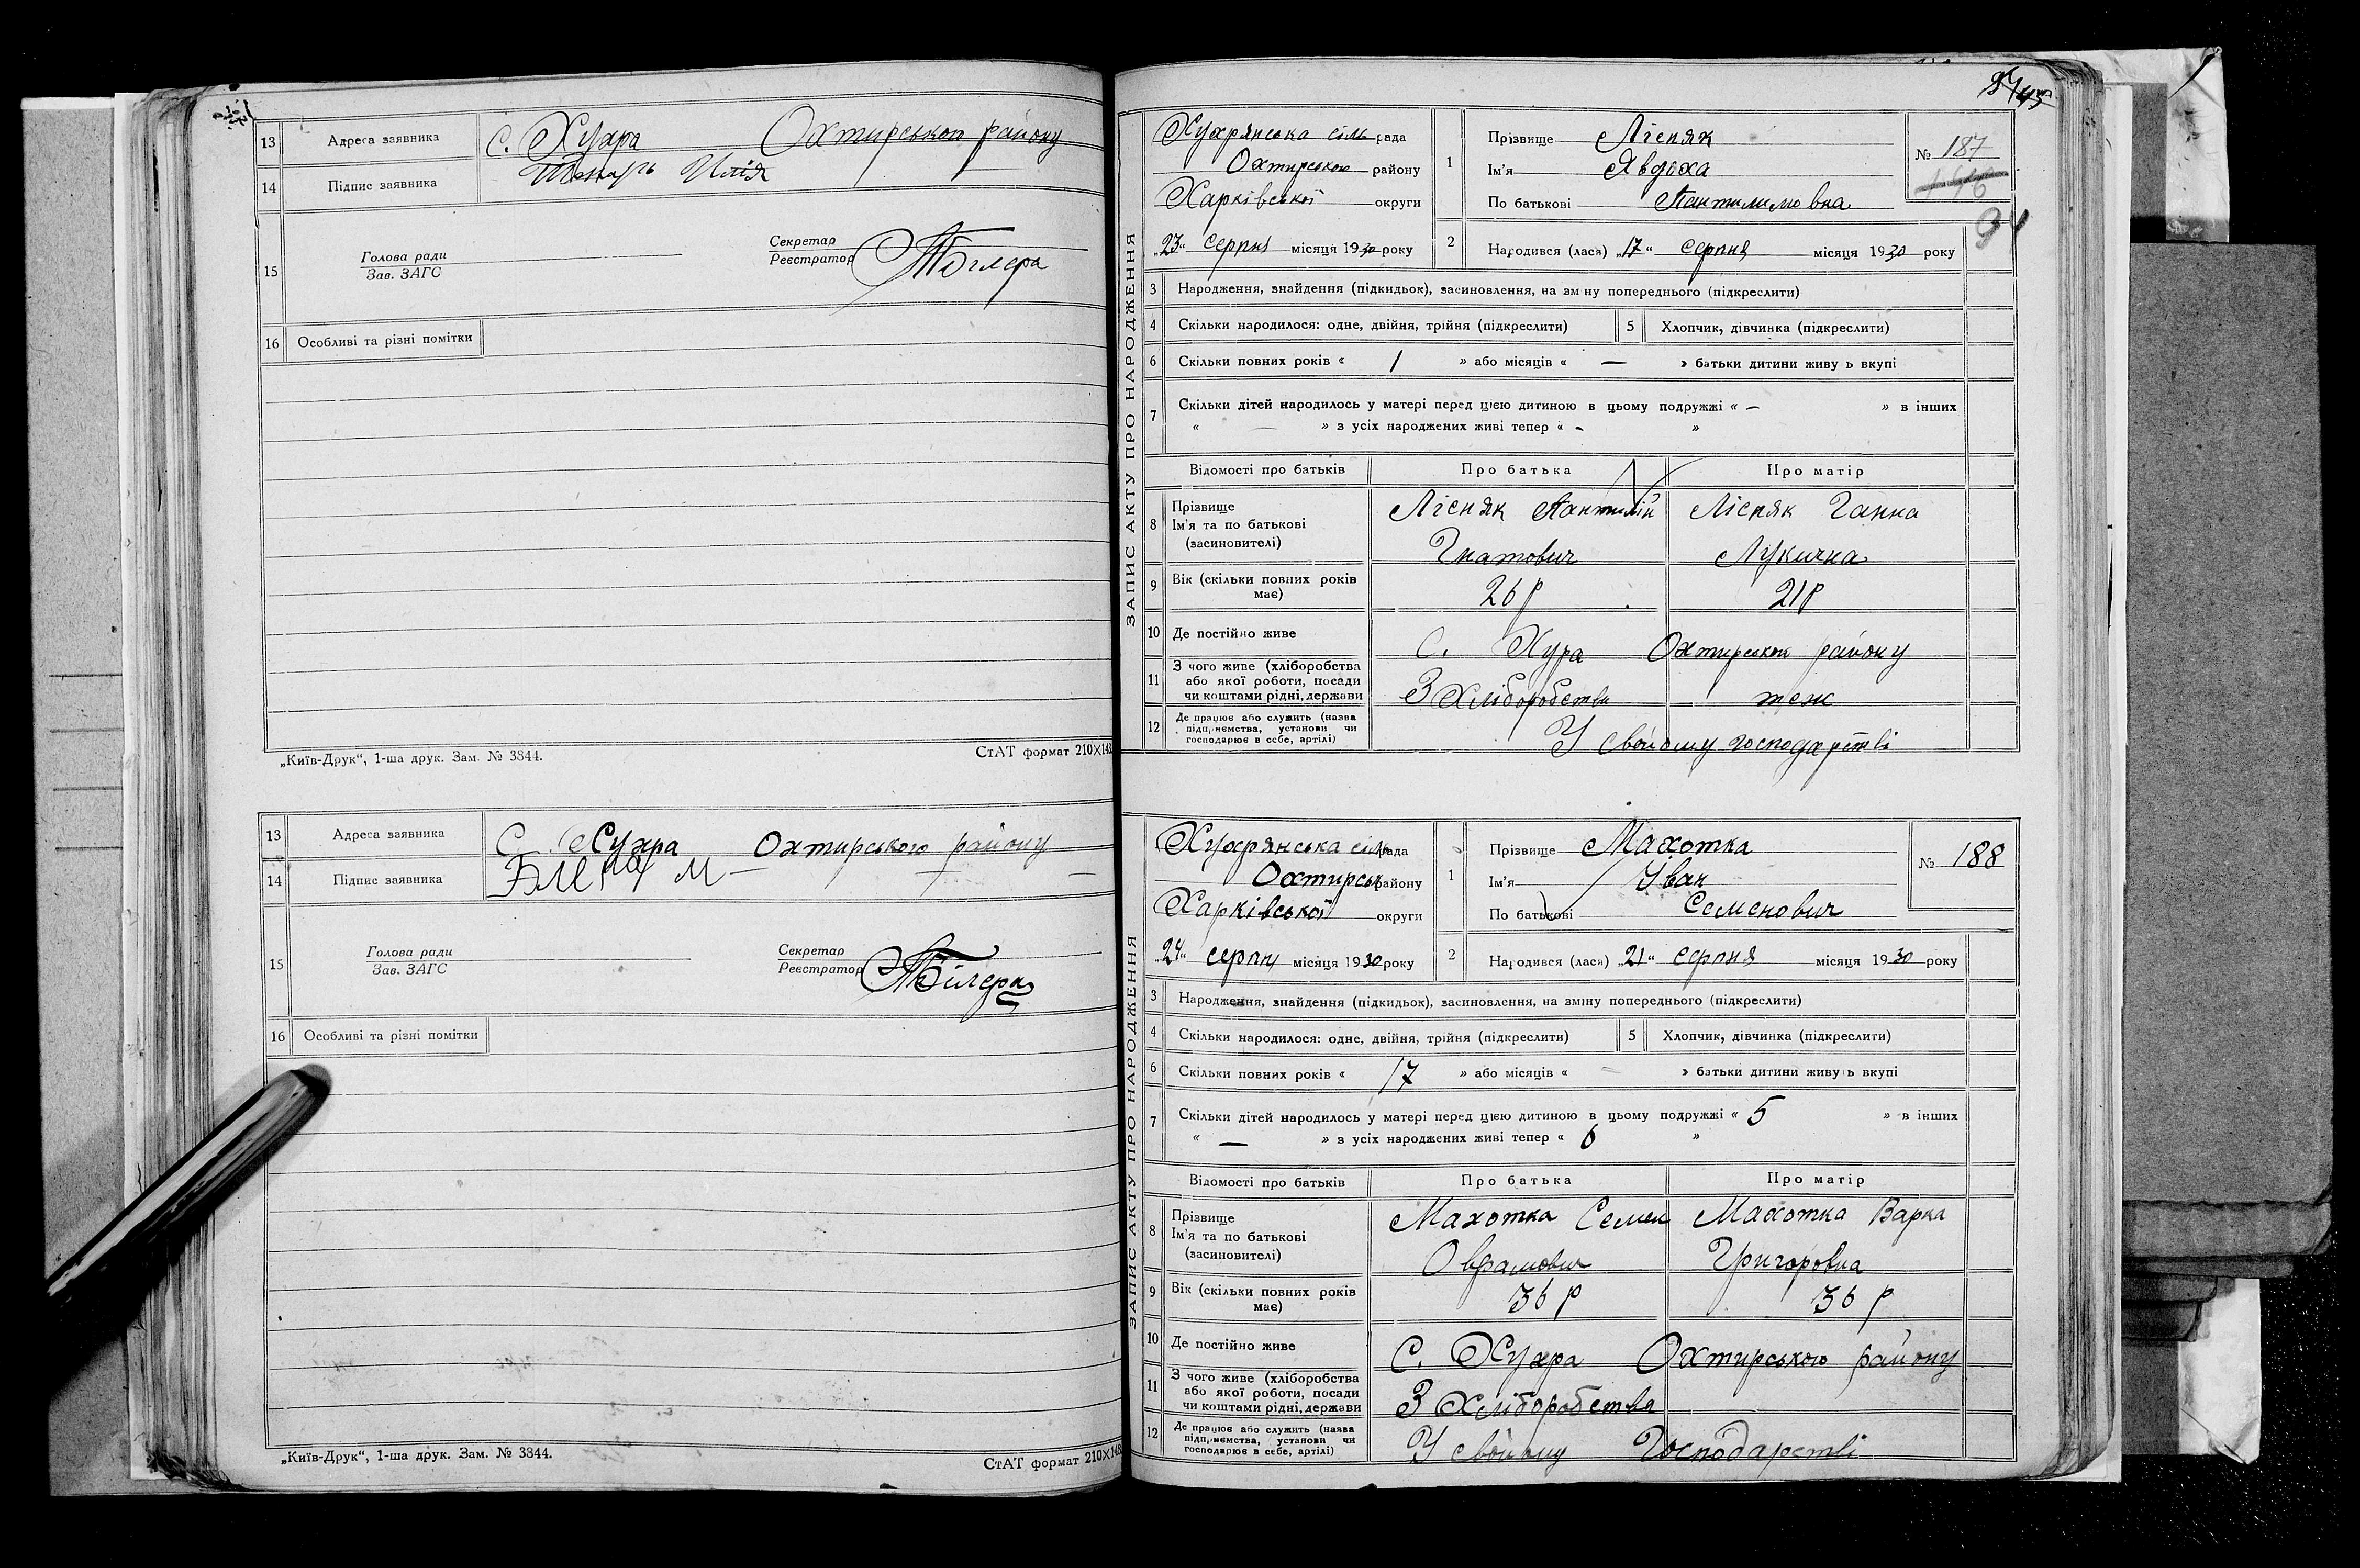 13 Адреса заявника с. Хухра Охтирського району
14 Підпис заявника Илія
15 Голова ради
Зав. ЗАГС
Секретар
Реєстратор
16 Особливі та різні помітки
„Київ-Друк“, 1-ша друк. Зам. № 3844.
СтАТ формат 210×148
13 Адреса заявника С. Хухра Охтирського району
14 Підпис заявника
15 Голова ради
Зав. ЗАГС
Секретар
Реєстратор
16 Особливі та різні помітки
„Київ-Друк“, 1-ша друк. Зам. № 3844.
СтАТ формат 210×148
ЗАПИС АКТУ ПРО НАРОДЖЕННЯ
Хухрянська сіль рада
Охтирського району
Харківської округи
„23“ серпня місяця 1930 року
1 Прізвище Лісняк
Ім'я Явдоха
По батькові Пантилимовна
№ 187
94
2 Народився (лася) „17“ серпня місяця 1930 року
3 Народження, знайдення (підкидьок), засиновлення, на зм ну попереднього (підкреслити)
4 Скільки народилося: одне, двійня, трійня (підкреслити) 5 Хлопчик, дівчинка (підкреслити)
6 Скільки повних років « 1 » або місяців « — » батьки дитини живу ь вкупі
7 Скільки дітей народилось у матері перед цією дитиною в цьому подружжі « — » в інших
« — » з усіх народжених живі тепер « - »
Відомості про батьків Про батька Про матір
8 Прізвище
Ім'я та по батькові
(засиновителі)
Лісняк Пантилій Лісняк Ганна
Гнатович Лукична
9 Вік (скільки повних років
має)
26 р 21 р
10 Де постійно живе С. Хура Охтирського району
11 З чого живе (хліборобства
або якої роботи, посади
чи коштами рідні, держави
З Хліборобства теж
12 Де працює або служить (назва
підприємства, установи чи
господарює в себе, артілі)
У свойому господарстві
ЗАПИС АКТУ ПРО НАРОДЖЕННЯ
Хухрянська сіль рада
Охтирськ району
Харківської округи
„24“ серпня місяця 1930 року
1 Прізвище Махотка
Ім'я Іван
По батькові Семенович
№ 188
2 Народився (лася) „21“ серпня місяця 1930 року
3 Народження, знайдення (підкидьок), засиновлення, на зміну попереднього (підкреслити)
4 Скільки народилося: одне, двійня, трійня (підкреслити) 5 Хлопчик, дівчинка (підкреслити)
6 Скільки повних років « 17 » або місяців « — » батьки дитини живу ь вкупі
7 Скільки дітей народилось у матері перед цією дитиною в цьому подружжі « 5 » в інших
« — » з усіх народжених живі тепер « 6 »
Відомості про батьків Про батька Про матір
8 Прізвище
Ім'я та по батькові
(засиновителі)
Махотка Семен Махотка Варка
Оврамович Григоровна
9 Вік (скільки повних років
має)
36 р 36 р
10 Де постійно живе С. Хухра Охтирського району
11 З чого живе (хліборобства
або якої роботи, посади
чи коштами рідні, держави
З Хліборобства
12 Де працює або служить (назва
підприємства, установи чи
господарює в себе, артілі)
У свойому Господарстві